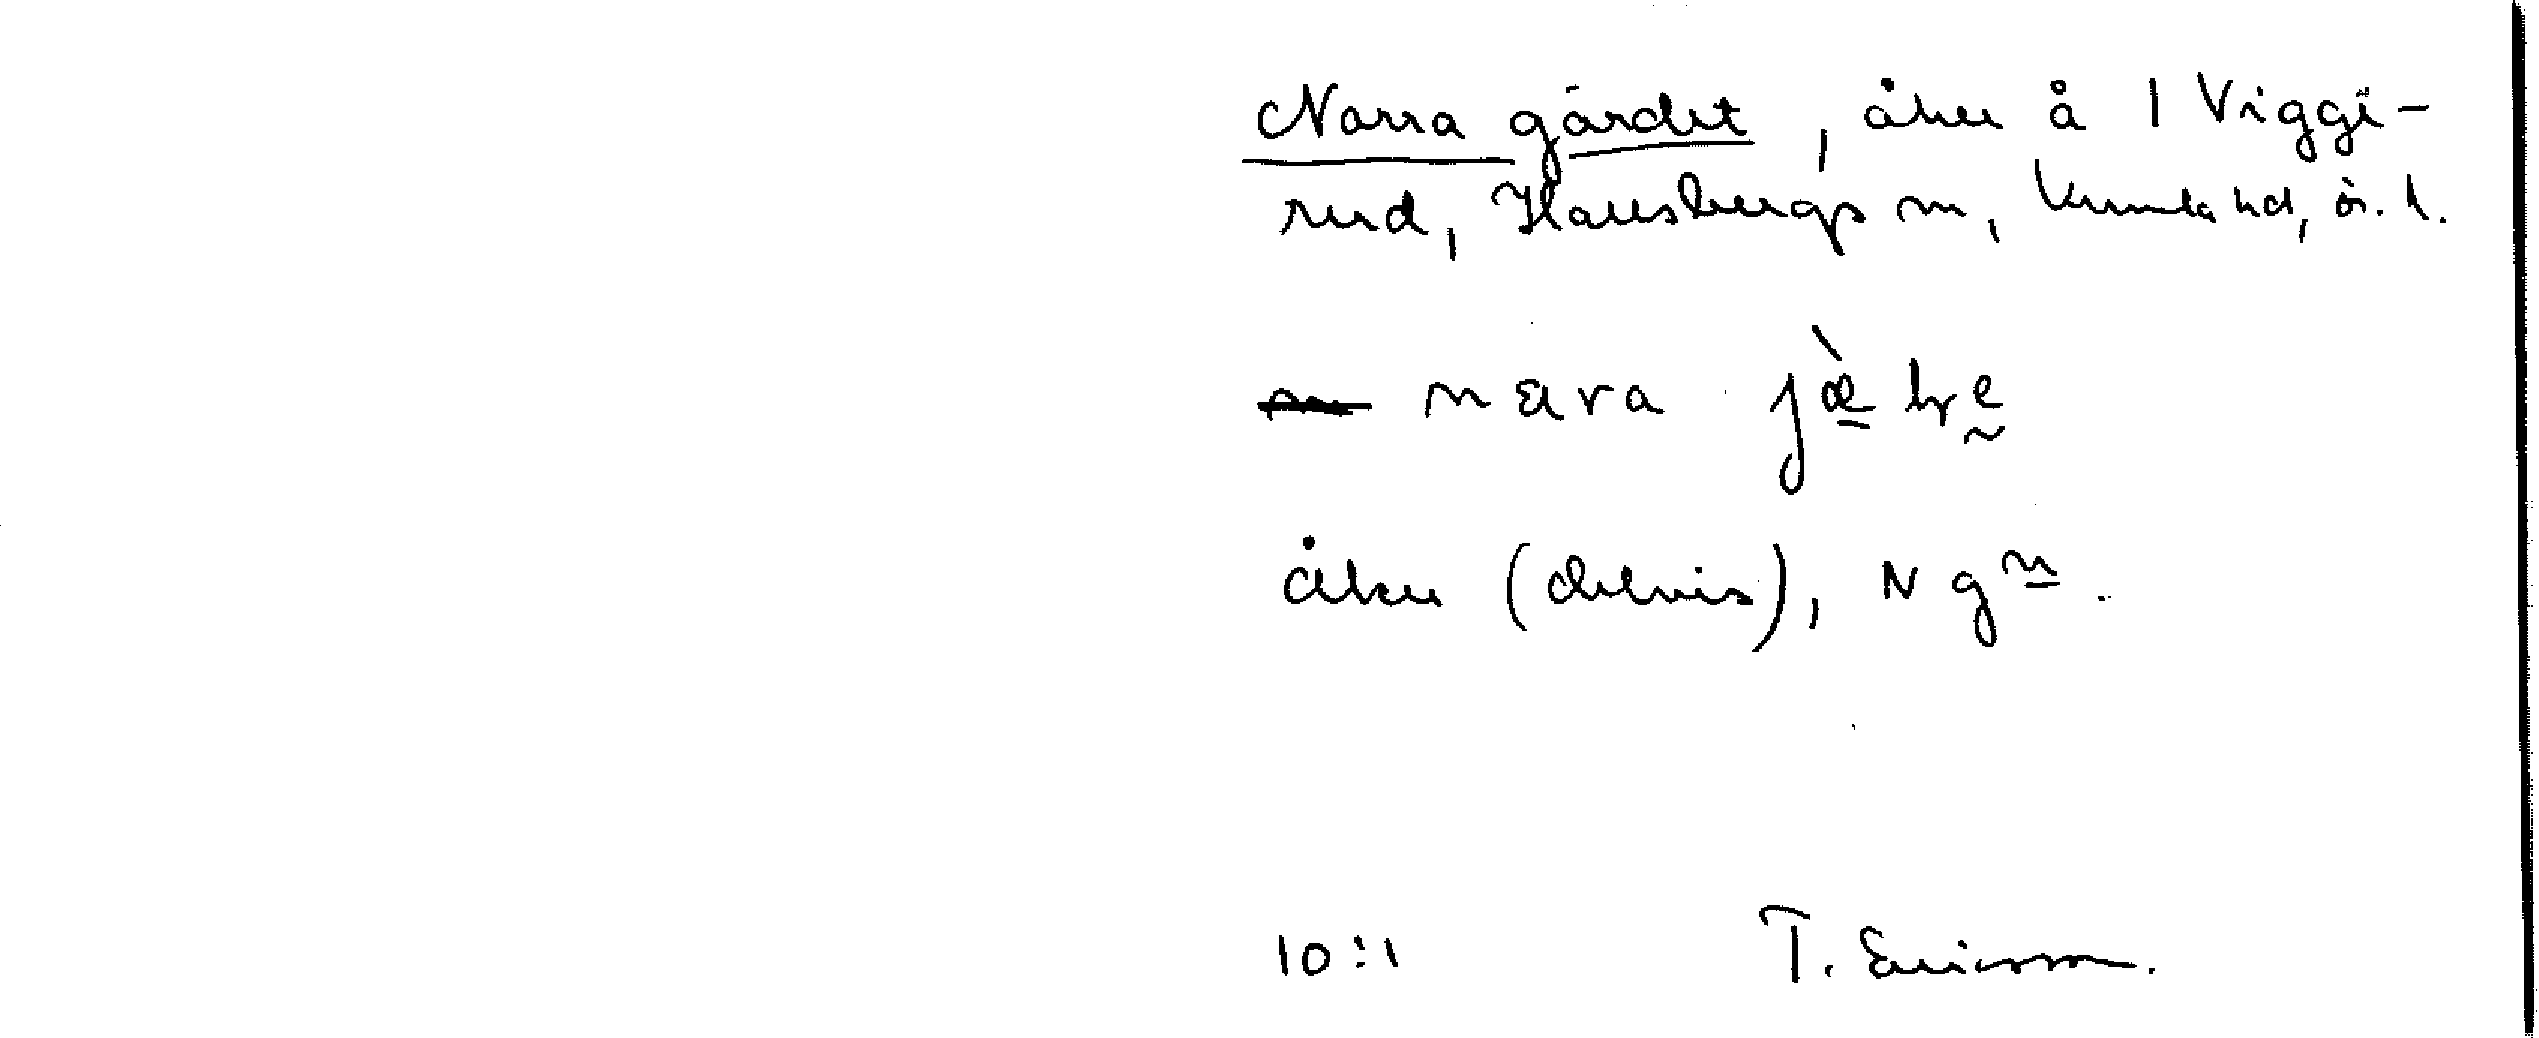 Norra gärdet, åker å 1 Viggi-
rud, Hallsbergs sn, Kumla hd, ör. l.
jæ̀ ḷe
åker (delvis), N gn.
10:1 T. Ericsson.